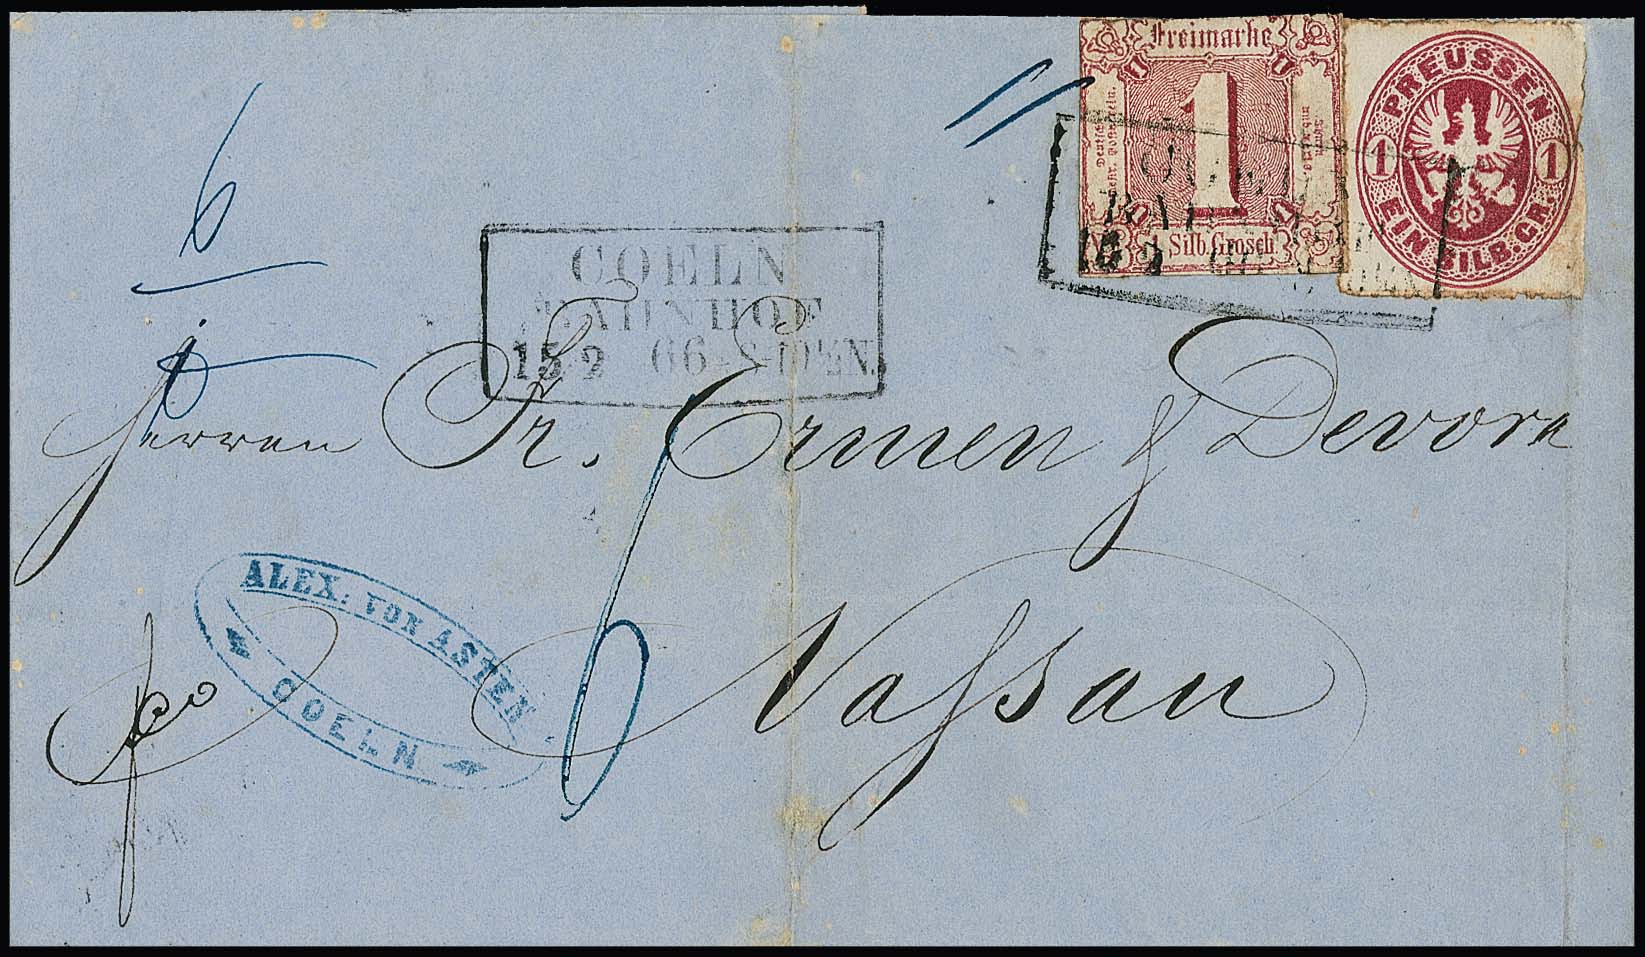 Freimarke
1 1
1
Deutsch
1 1
1 Silb. Grosch.
PREUSSEN
1 1
EIN SILB. GR.
6
COELN
BAHNHOF
15 2 66
Herren Fr. Ermen & Devora
6
ALEX. VON ASTEN
COELN
Nassau